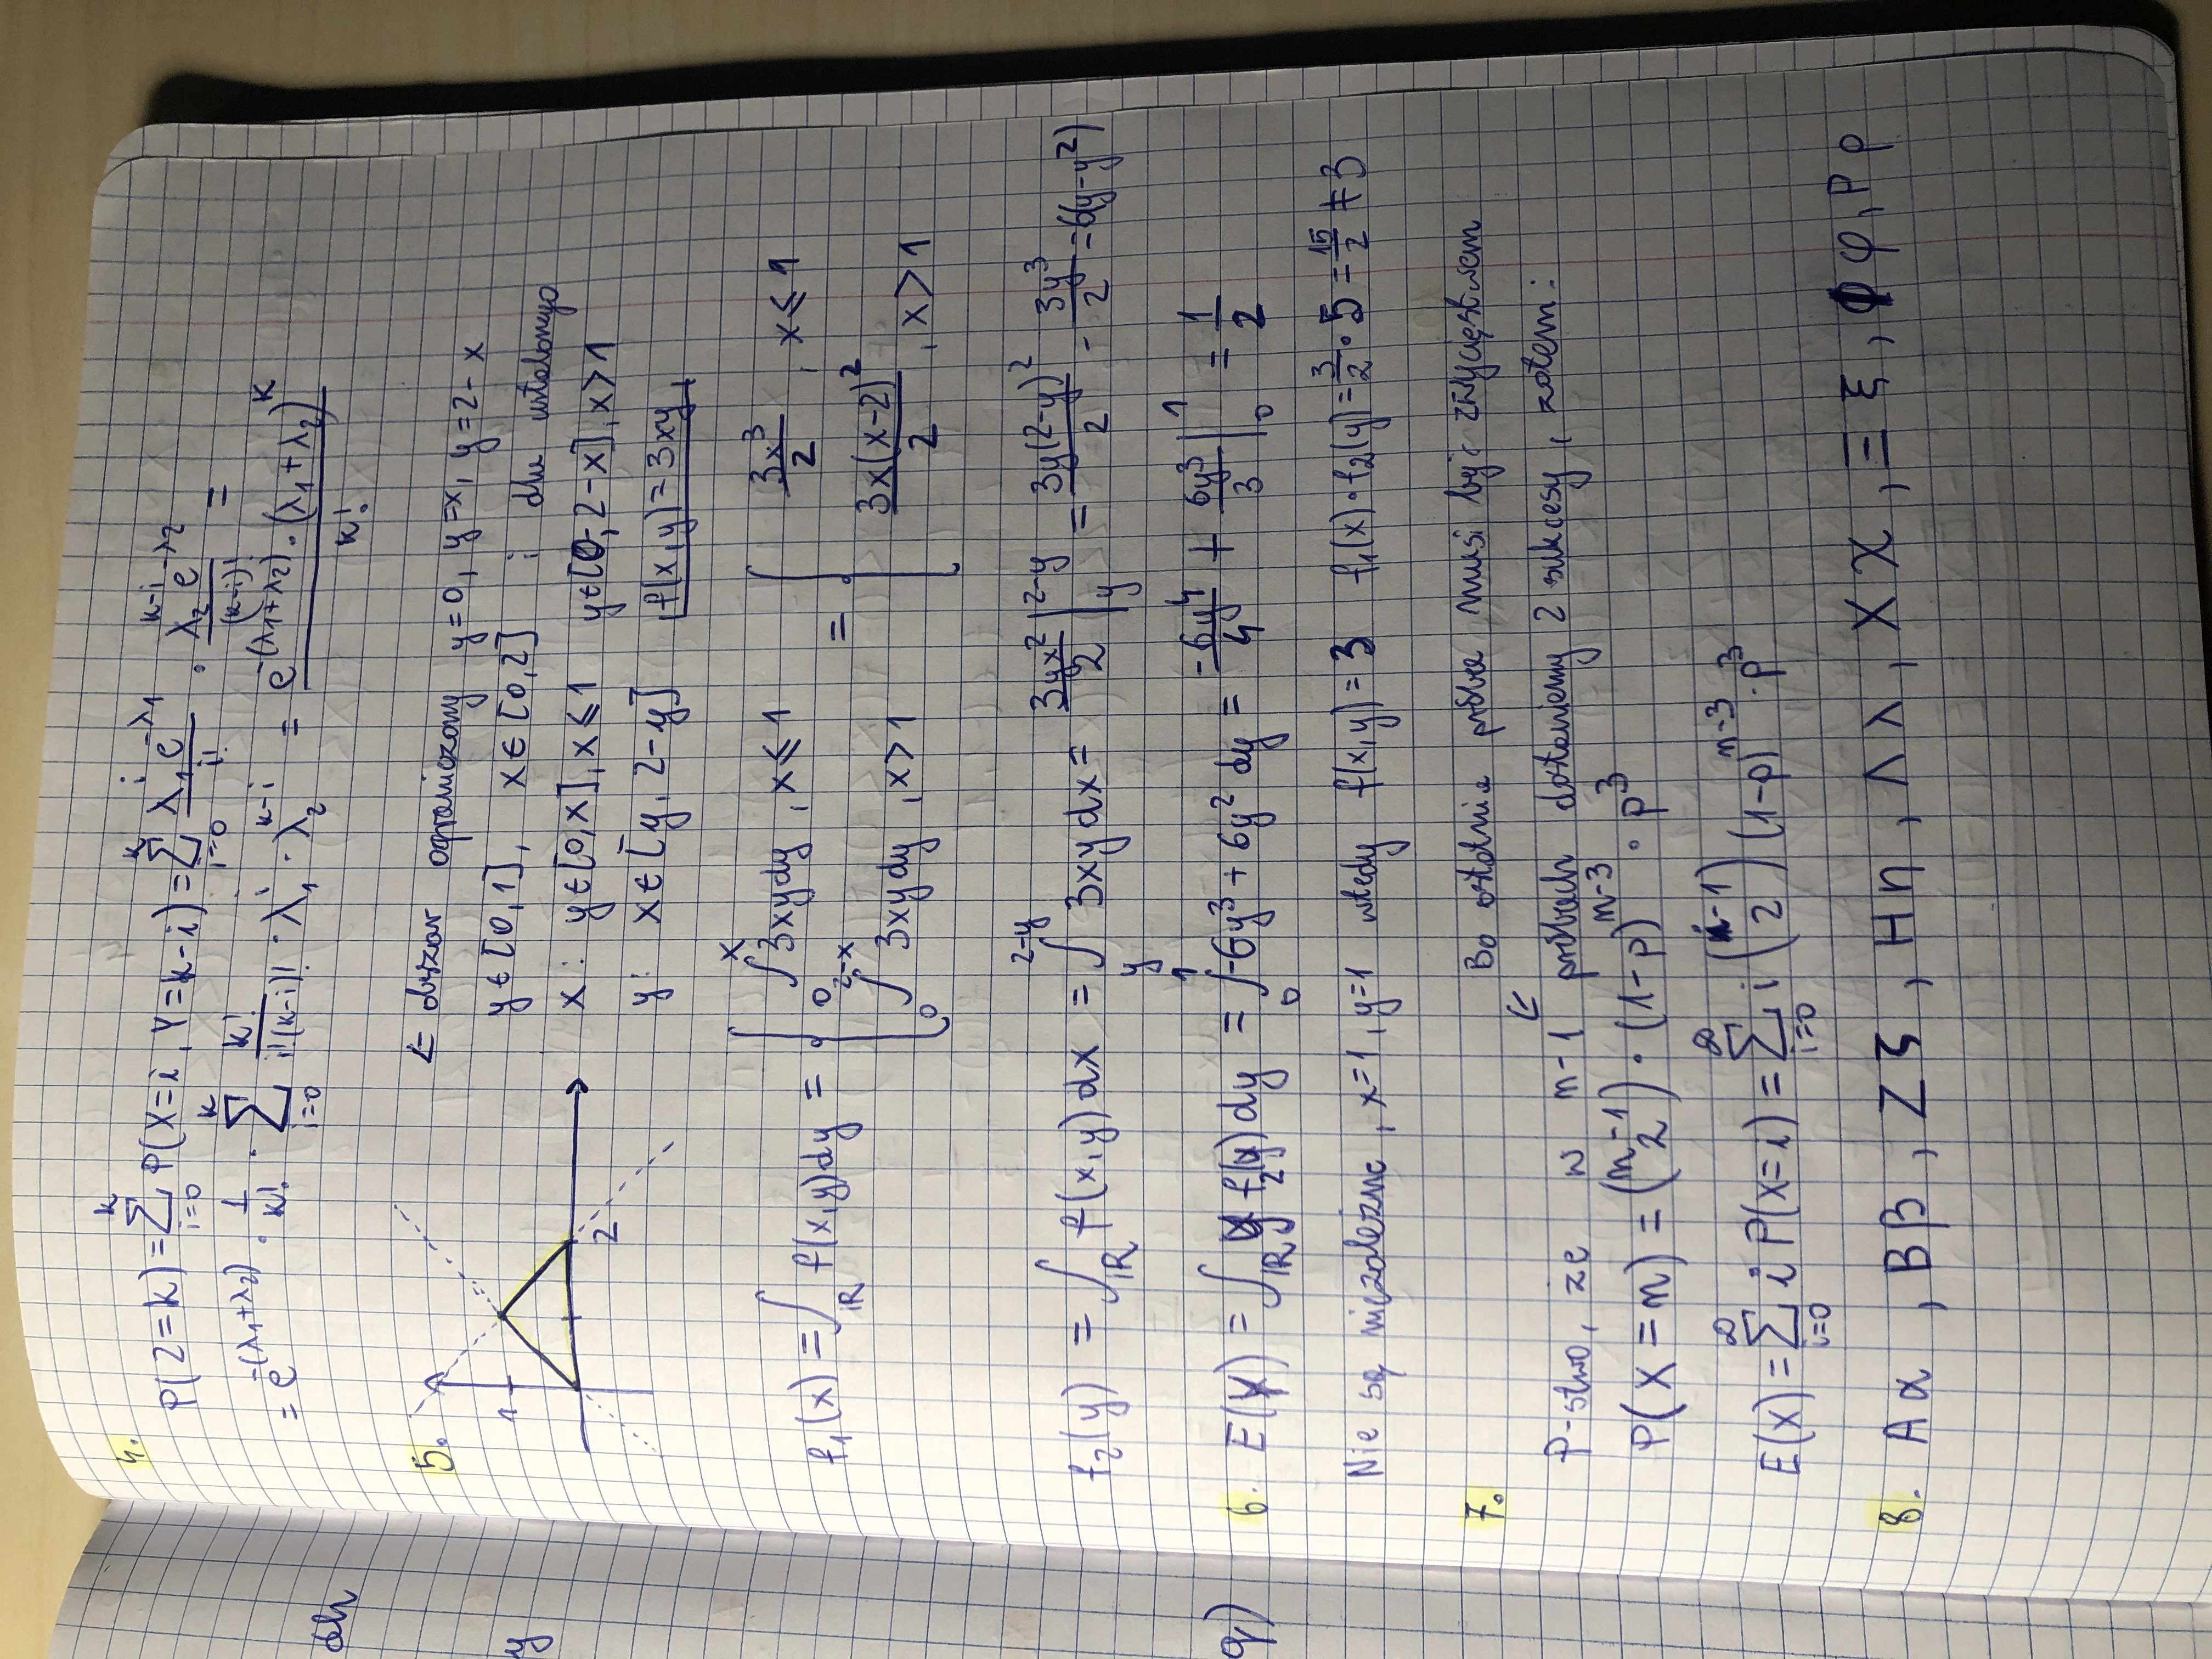 dh
y
q)
4.
P(Z=k) = \sum_{i=0}^{k} P(X=i, Y=k-i) = \sum_{i=0}^{k} \frac{λ_1^i e^{-λ_1}}{i!} · \frac{λ_2^{k-i} e^{-λ_2}}{(k-i)!} =
= e^{-(λ_1+λ_2)} · \frac{1}{k!} · \sum_{i=0}^{k} \frac{k!}{i!(k-i)!} · λ_1^i · λ_2^{k-i} = \frac{e^{-(λ_1+λ_2)} · (λ_1+λ_2)^k}{k!}
5.
1
2
← obszar ograniczony y=0, y=x, y=2-x
y∈[0,1], x∈[0,2] i dla ustalonego
x: y∈[0,x], x⩽1 y∈[0,2-x], x>1
y: x∈[y, 2-y] f(x,y)=3xy
f_1(x) = \int_{ℝ} f(x,y)dy = { \int_0^x 3xydy, x⩽1 ; \int_0^{2-x} 3xydy, x>1 = { \frac{3x^3}{2}, x⩽1 ; \frac{3x(x-2)^2}{2}, x>1
f_2(y) = \int_{ℝ} f(x,y)dx = \int_y^{2-y} 3xydx = \frac{3yx^2}{2} |_y^{2-y} = \frac{3y(2-y)^2}{2} - \frac{3y^3}{2} = 6(y-y^2)
6. E(Y) = \int_{ℝ} y f_2(y)dy = \int_0^1 -6y^3 + 6y^2 dy = \frac{-6y^4}{4} + \frac{6y^3}{3} |_0^1 = \frac{1}{2}
Nie są niezależne, x=1, y=1 wtedy f(x,y) = 3 f_1(x)·f_2(y) = \frac{3}{2}·5 = \frac{15}{2} ≠ 3
7.
Bo ostatnia próba musi być zwycięstwem
P-stwo, że w n-1 próbach dostaniemy 2 sukcesy, zatem:
P(X=n) = \binom{n-1}{2} · (1-p)^{n-3} · p^3
E(X) = \sum_{i=0}^{∞} i P(X=i) = \sum_{i=0}^{∞} i \binom{i-1}{2} (1-p)^{n-3} · p^3
8. Α α, Β β, Ζ ζ, Η η, Λ λ, Χ χ, Ξ ξ, Φ φ, Ρ ρ